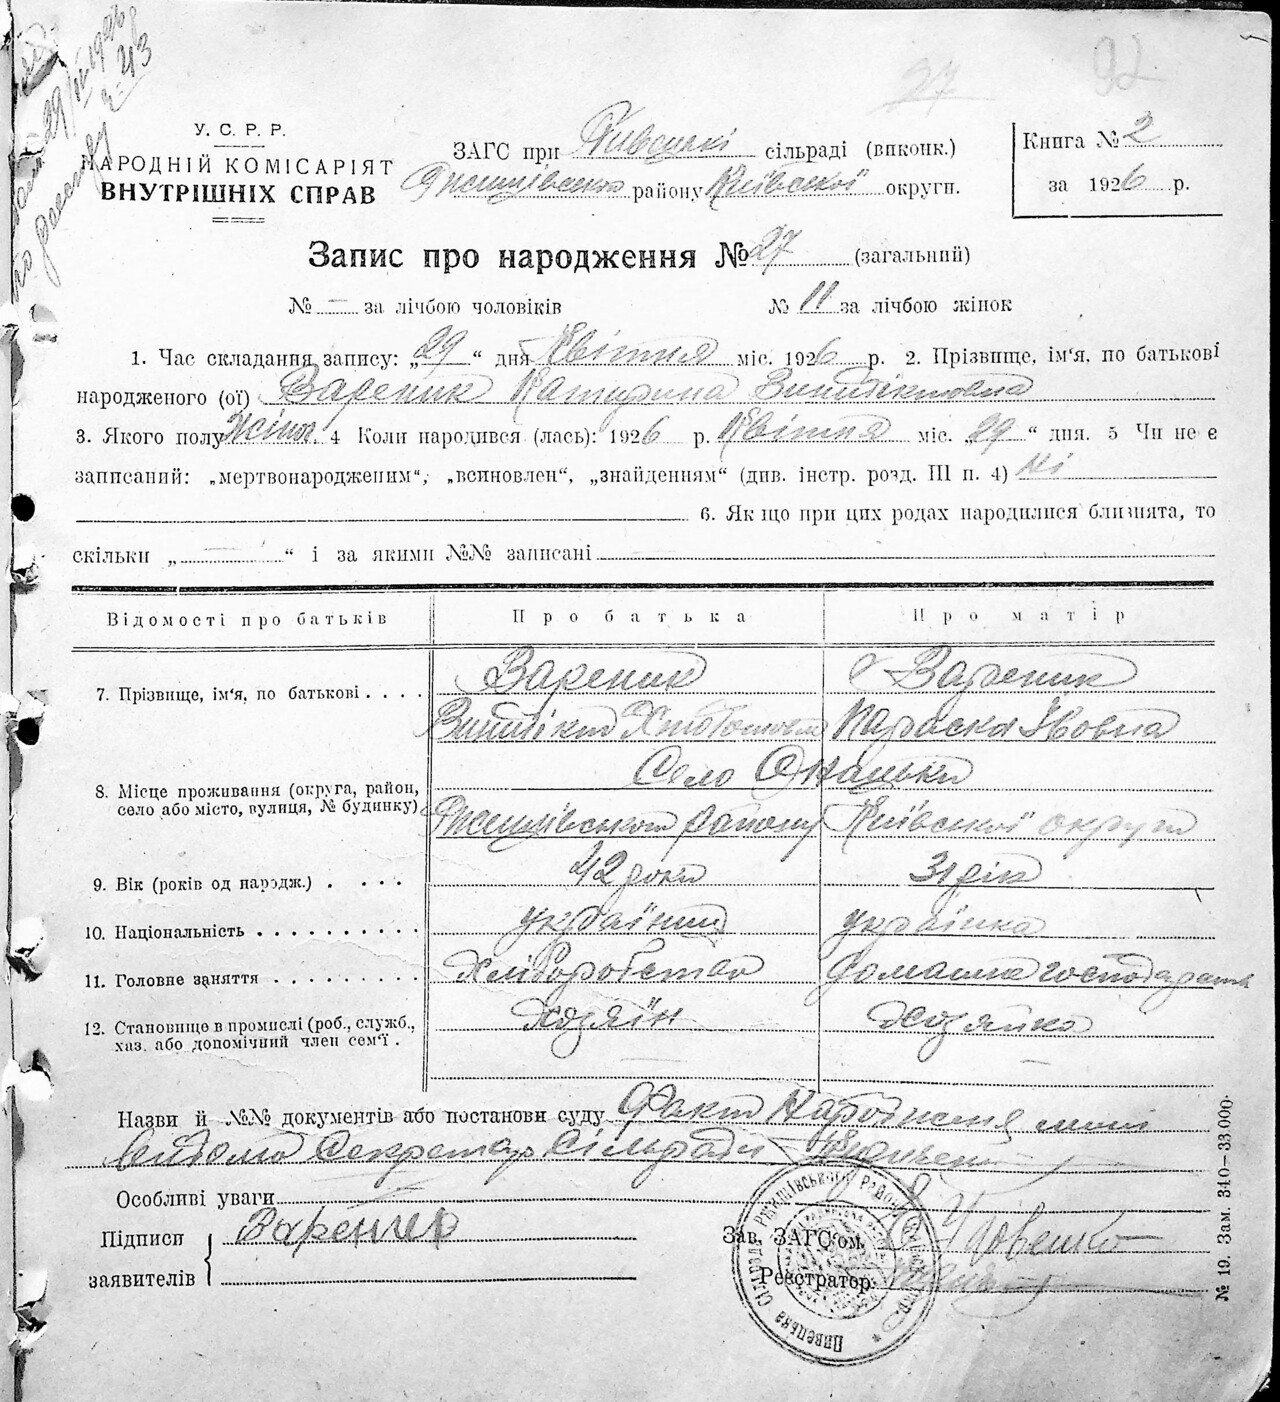 92
27
29/IV 1926
№ 243
У. С. Р. Р.
НАРОДНІЙ КОМІСАРІЯТ
ВНУТРІШНІХ СПРАВ
ЗАГС при сільраді (виконк.)
Ржищівського району Київської округи.
Книга № 2
за 1926 р.
Запис про народження № 27 (загальний)
№ — за лічбою чоловіків № 11 за лічбою жінок
1. Час складання запису: „29“ дня Квітня міс. 1926 р. 2. Прізвище, ім'я, по батькові
народженого (ої) Вареник Катерина
3. Якого полу жіноч. 4 Коли народився (лась): 1926 р. Квітня міс. „29“ дня. 5 Чи не є
записаний: „мертвонародженим“, „всиновлен“, „знайденням“ (див. інстр. розд. III п. 4) Ні
6. Як що при цих родах народилися близнята, то
скільки „ — “ і за якими №№ записані —
Відомості про батьків Про батька Про матір
7. Прізвище, ім'я, по батькові . . . . Вареник Вареник
Параска Івовна
8. Місце проживання (округа, район, село або місто, вулиця, № будинку) Село
Ржищівського району Київської округи
9. Вік (років од народж.) . . . . 42 роки 31 рік
10. Національність . . . . . . . . . . українець українка
11. Головне заняття . . . . . . . . Хліборобство домашне господарств
12. Становище в промислі (роб., служб., хаз. або допомічний член сем'ї . Хозяїн Хозяйка
Назви й №№ документів або постанови суду Факт Народження мені
відомо Секретар Сільради
Особливі уваги
Підписи заявителів { Вареник
Зав. ЗАГС'ом.
Реєстратор
№ 19. Зам. 340—33 000.